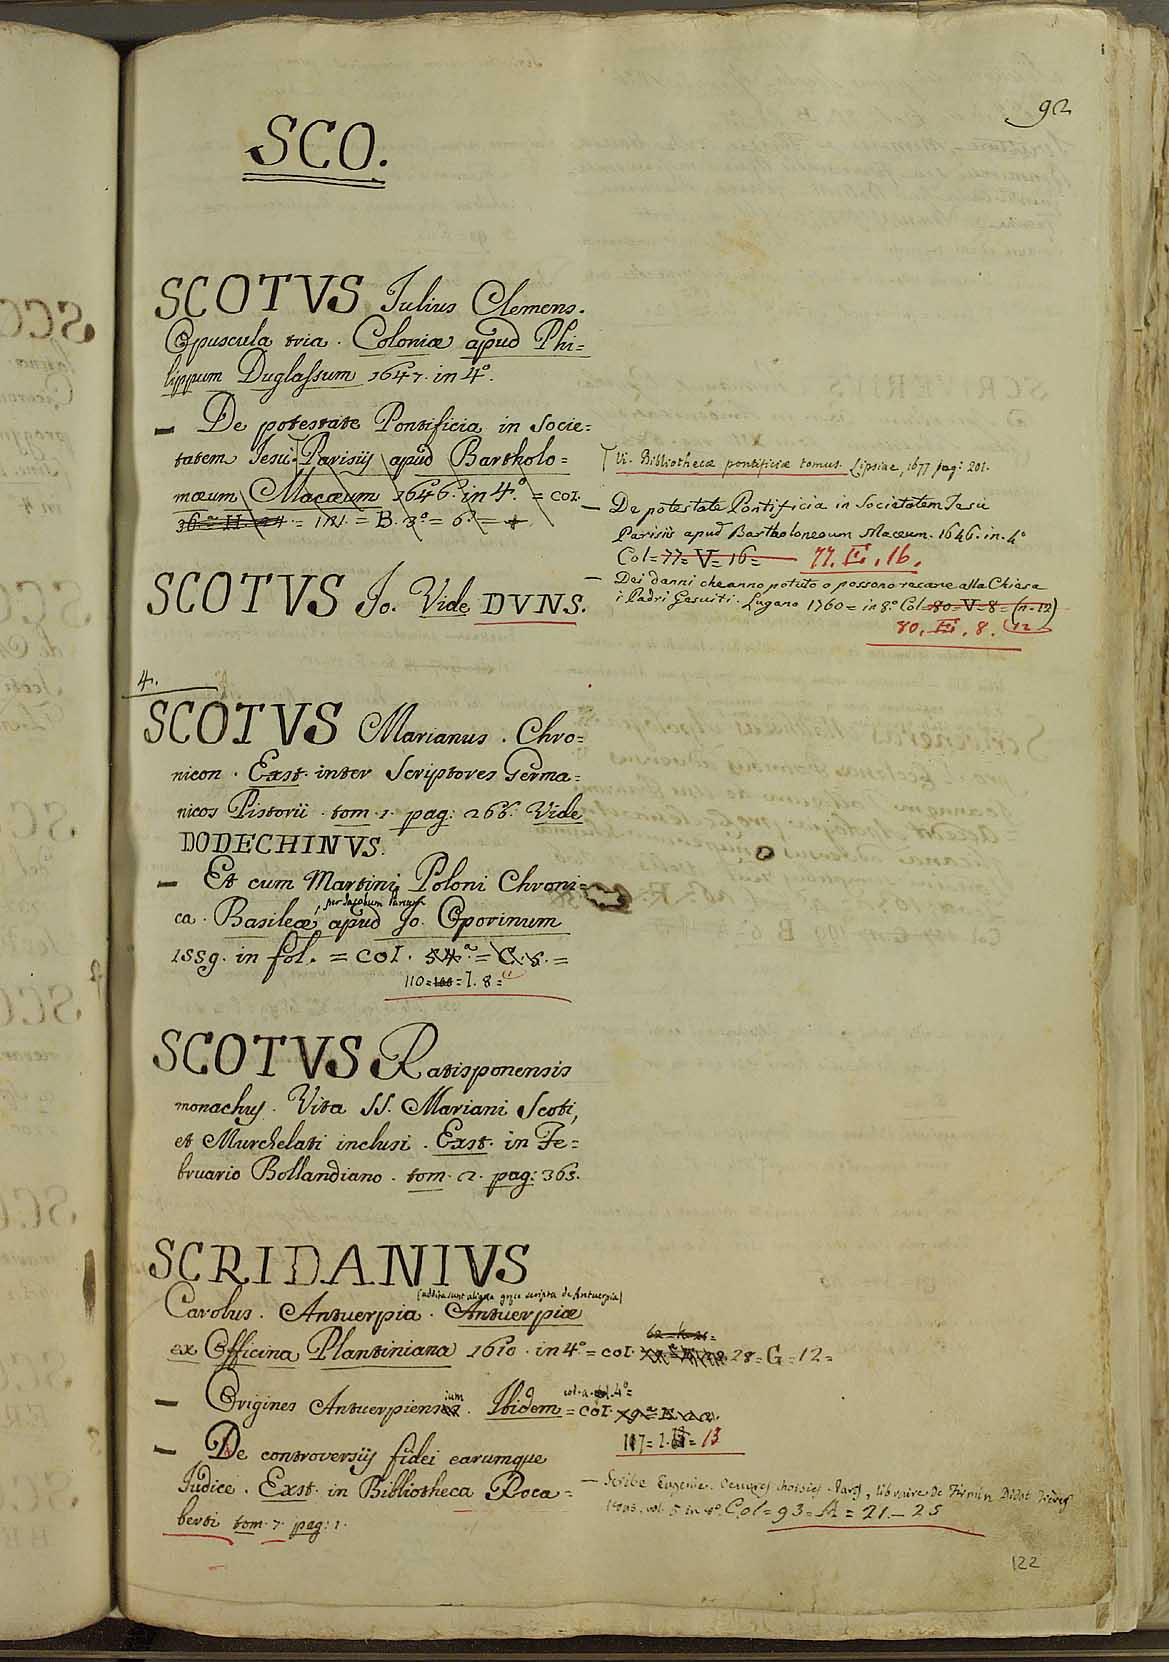 92
SCO.
SCOTVS Julius Clemens.
Opuscula tria. Coloniæ apud Phi=
lippum Duglassum 1647. in 4.º
– De potestate Pontificia in Socie=
tatem Jesu. Parisiis apud Bartholo=
mæum Macæum 1646. in 4.º = Col.
= 121. = B. 3.º = 6.º =
SCOTVS Jo. Vide DVNS.
4.
SCOTVS Marianus. Chro=
nicon. Exst. inter Scriptores Germa=
nicos Pistorii. tom. 1. pag: 266. Vide
DODECHINVS.
– Et cum Martini Poloni Chroni=
per Jacobum Parcum
ca. Basileæ, apud Jo. Oporinum
1559. in fol. = Col. 54.ª = C. 8. =
110 = I. 8 =
SCOTVS Ratisponensis
monachus. Vita SS. Mariani Scoti,
et Murchelati inclusi. Exst. in Fe=
bruario Bollandiano. tom. 2. pag: 365.
SCRIDANIVS
(addita sunt aliqua græce scripta de Antuerpia)
Carolus. Antuerpia. Antuerpiæ
ex Officina Plantiniana 1610. in 4.º = Col. 28 = G = 12 =
– Origines Antuerpiensium. Ibidem = Col.
117 = I. = 13
– De controversiis fidei earumque
Judice. Exst. in Bibliotheca Roca=
berti tom. 7. pag: 1.
Vi. Bibliothecæ pontificiæ tomus. Lipsiae, 1677 pag: 201.
– De potestate Pontificia in Societatem Jesu
Parisiis apud Bartholomeum Macæum. 1646. in. 4º
Col = 77 = V = 16 = 77. E. 16.
– Dei danni che anno potuto o possono recare alla Chiesa
i Padri Gesuiti. Lugano 1760 = in 8.º Col = 80 = V = 8 = (n. 12)
80. E. 8. (12
– Scribe Eugenie. Oeuvres choisies. Paris, librairie De Firmin Didot Frères
vol. 5 in 4º. Col = 93 = A = 21 – 25
122